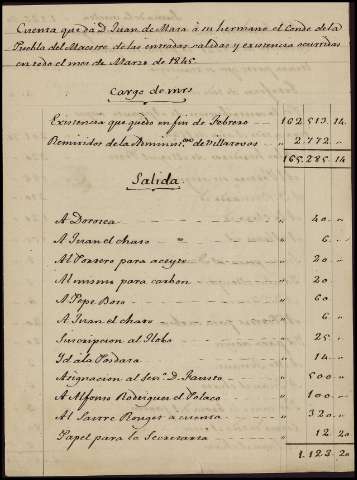 Cuenta que dá D. Juan de Mata á su hermano el Conde de la
Puebla del Maestre de las entradas, salidas y existencia ocurridas
en todo el mes de Marzo de 1845.
Cargo de mrs
Existencia que quedó en fin de Febrero 162.513. 14.
Remitidos de la Adminison de Villarasas " 2.772. "
165.285. 14
Salida
A Dorotea " 40. "
A Juan el charo " 6. "
Al Portero para aceyte " 20. "
Al mismo para carbon " 20. "
A Pepe Boso " 60 "
A Juan el charo " 6 "
Suscripcion al Globo " 25 "
Id a la Posdata " 14 "
Asignacion al Sevte D. Fausto " 500 "
A Alfonso Rodriguez el Polaco " 100 "
Al Sastre Rouget a cuenta " 320 "
Papel para la Secretaria " 12. 20
1.123. 20